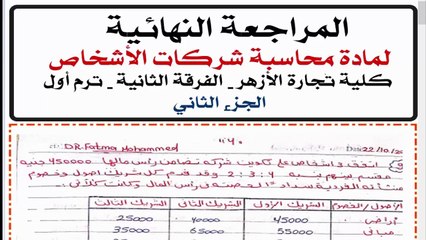 المراجعة النهائية
لمادة محاسبة شركات الأشخاص
كلية تجارة الأزهر - الفرقة الثانية - ترم أول
الجزء الثاني
DR.Fatma Mohammed
22/10/20
اتفق 3 اشخاص على تكوين شركة تضامن رأس مالها 450000 جنيه
مقسم بينهم بـ 4 : 3 : 2 وقد قدم كل شريك اصول وخصوم
منشأته الفردية سداداً لحصته فى رأس المال وكانت كالآتى :
الأصول / الخصوم الشريك الأول الشريك الثانى الشريك الثالث
أراضى 45000 40000 25000
مبانى 55000 65000 35000